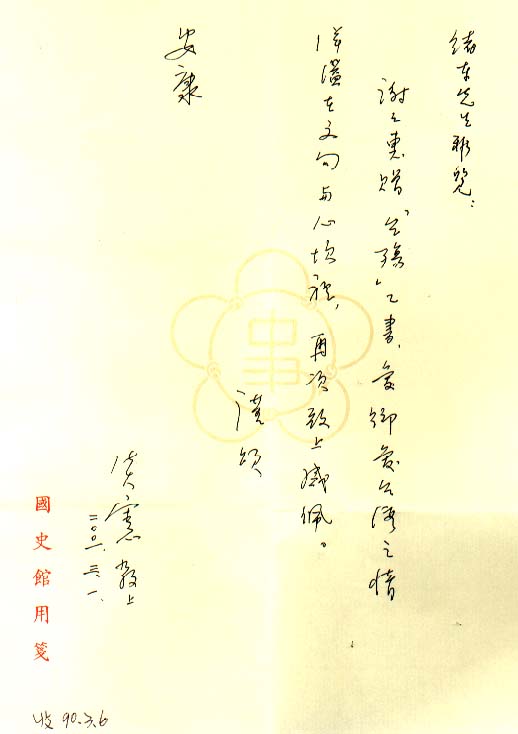 先生雅覽：
謝々惠贈「台」乙書、愛鄉愛台灣之情
洋溢在文句與心坎裡，再次致上感佩。
謹頌
安康
炎憲 敬上
二〇〇一、三、一、
國史館用箋
收 90.3.6